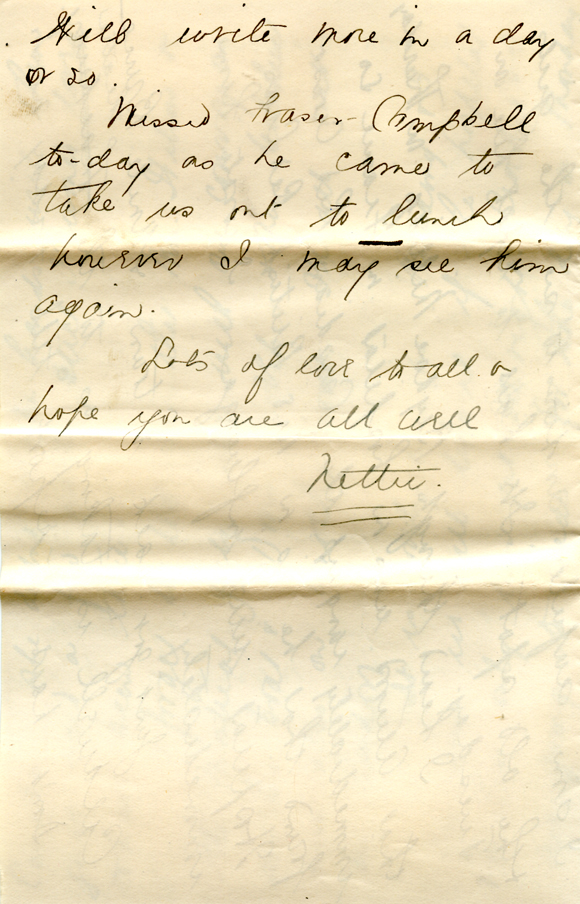 Will write more in a day
or so.
Missed Fraser-Campbell
to-day as he came to
take us out to lunch
however I may see him
again.
Lots of love to all &
hope you are all well
Nettie.